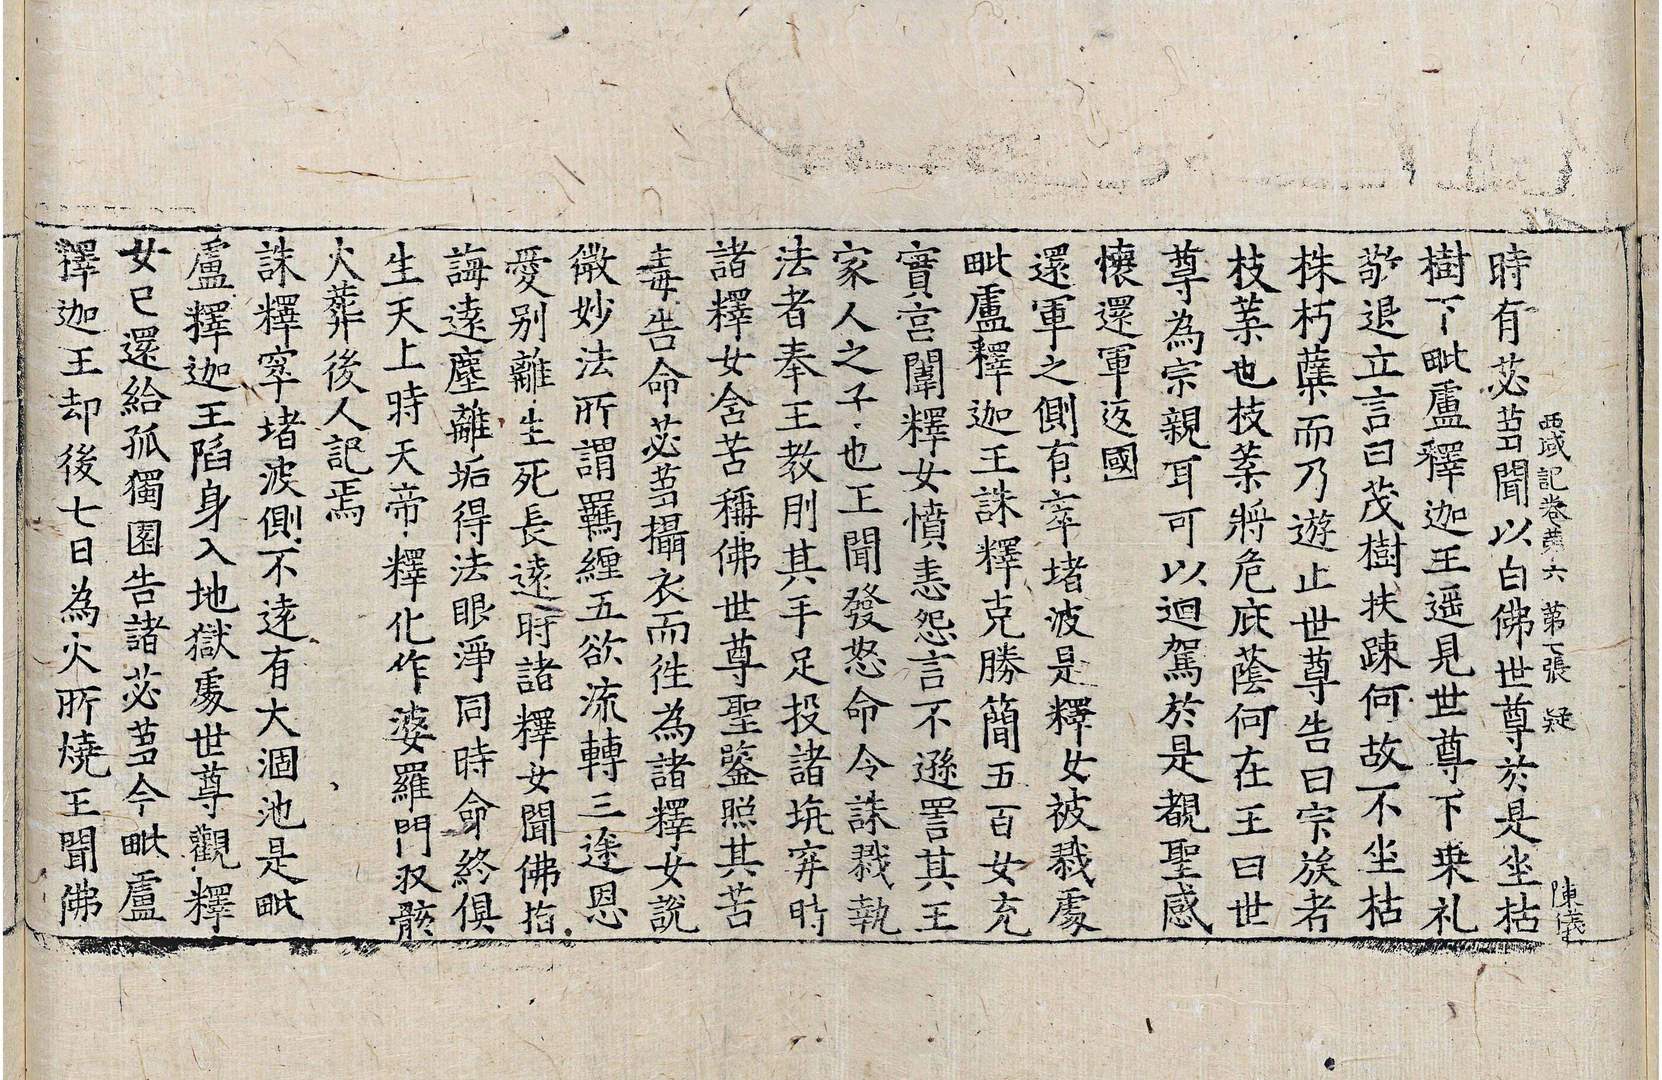 西域記卷苐六 第一張 疑 陳儀
時有苾芻聞以白佛世尊於是坐枯
樹下毗盧釋迦王遥見世尊下乗礼
敬退立言曰茂樹扶踈何故不坐枯
株朽蘖而乃遊止世尊告曰宗族者
枝葉也枝葉將危庇蔭何在王曰世
尊為宗親耳可以迴駕於是覩聖感
懷還軍返國
還軍之側有窣堵波是釋女被戮處
毗盧釋迦王誅釋克勝簡五百女充
實宫闈釋女憤恚怨言不遜詈其王
家人之子也王聞發怒命令誅戮執
法者奉王教刖其手足投諸坑穽時
諸釋女含苦稱佛世尊聖鑒照其苦
毒告命苾芻攝衣而往為諸釋女說
微妙法所謂羈纏五欲流轉三途恩
愛别離生死長遠時諸釋女聞佛指
誨遠塵離垢得法眼淨同時命終俱
生天上時天帝釋化作婆羅門収骸
火葬後人記焉
誅釋窣堵波側不遠有大涸池是毗
盧釋迦王陷身入地獄處世尊觀釋
女已還給孤獨園告諸苾芻今毗盧
釋迦王却後七日為火所燒王聞佛